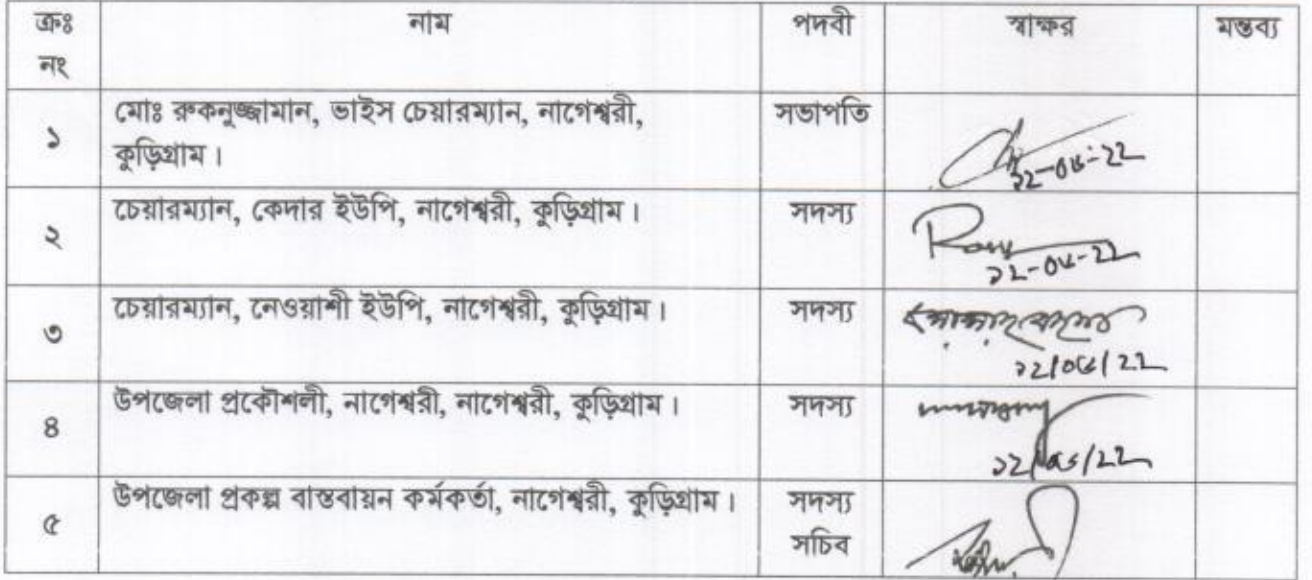 ক্রঃ নাম পদবী স্বাক্ষর মন্তব্য
নং
মোঃ রুকনুজ্জামান, ভাইস চেয়ারম্যান, নাগেশ্বরী, সভাপতি
১
কুড়িগ্রাম।
চেয়ারম্যান, কেদার ইউপি, নাগেশ্বরী, কুড়িগ্রাম। সদস্য
২
চেয়ারম্যান, নেওয়াশী ইউপি, নাগেশ্বরী, কুড়িগ্রাম। সদস্য
৩
উপজেলা প্রকৌশলী, নাগেশ্বরী, নাগেশ্বরী, কুড়িগ্রাম। সদস্য
৪
উপজেলা প্রকল্প বাস্তবায়ন কর্মকর্তা, নাগেশ্বরী, কুড়িগ্রাম। সদস্য
৫
সচিব